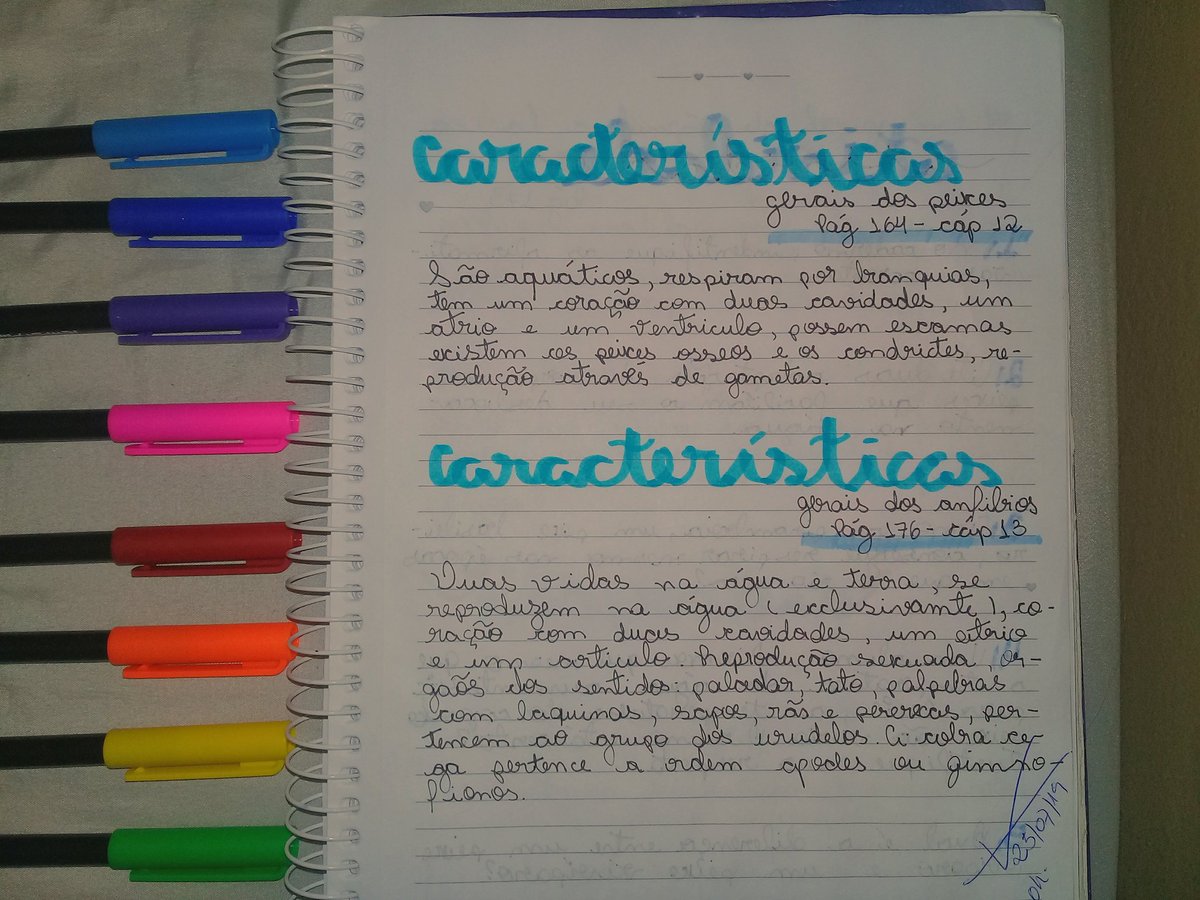 características
gerais dos peixes
Pág 164 - cáp 12
São aquáticos, respiram por branquias,
tem um coração com duas cavidades, um
átrio e um ventriculo, possem escamas
existem os peixes osseos e os condrictes, re-
produção através de gametas.
características
gerais dos anfibios
Pág 176 - cáp 13
Duas vidas na água e terra, se
reproduzem na água (exclusivamte), co-
ração com duas cavidades, um atrio
e um articulo. Reprodução sexuada, or-
gaõs dos sentidos: paladar, tato, palpebras
com laquinas, sapos, rãs e pererecas, per-
tencem ao grupo dos urudelos. A cobra ce-
ga pertence a ordem apodes ou gimno-
fionos.
23/07/19